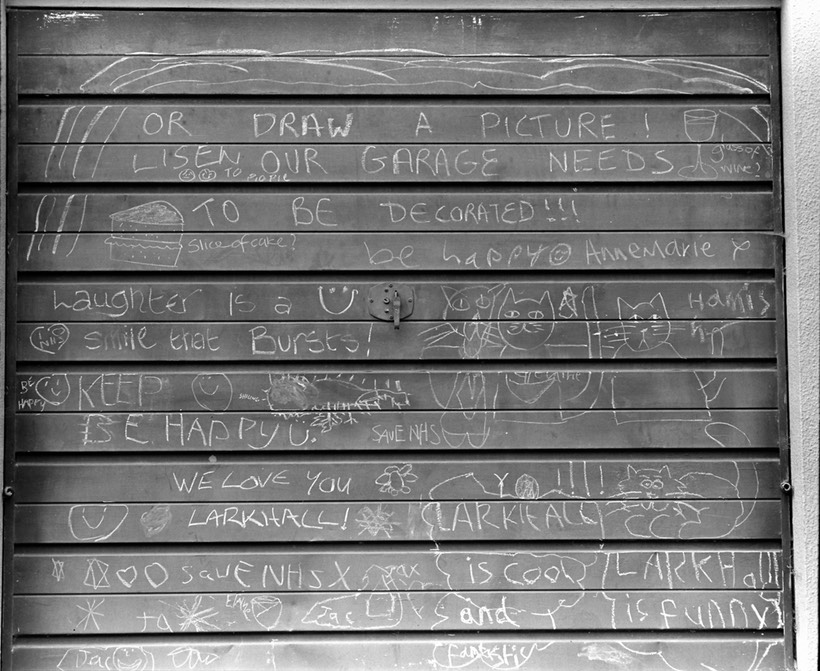 OR DRAW A PICTURE!
LISEN OUR GARAGE NEEDS
glass of wine?
TO PEOPLE
TO BE DECORATED!!!
Slice of cake?
be happy Annemarie x
Laughter is a
Hamish
smile that Bursts!
BE HAPPY
KEEP
BE HAPPY
SAVE NHS
WE LOVE YOU
LARKHALL!
LARKHALL
saveNHS X
is cool
LARKHall
ta
and
is funny
Jac
Jac
fantastic